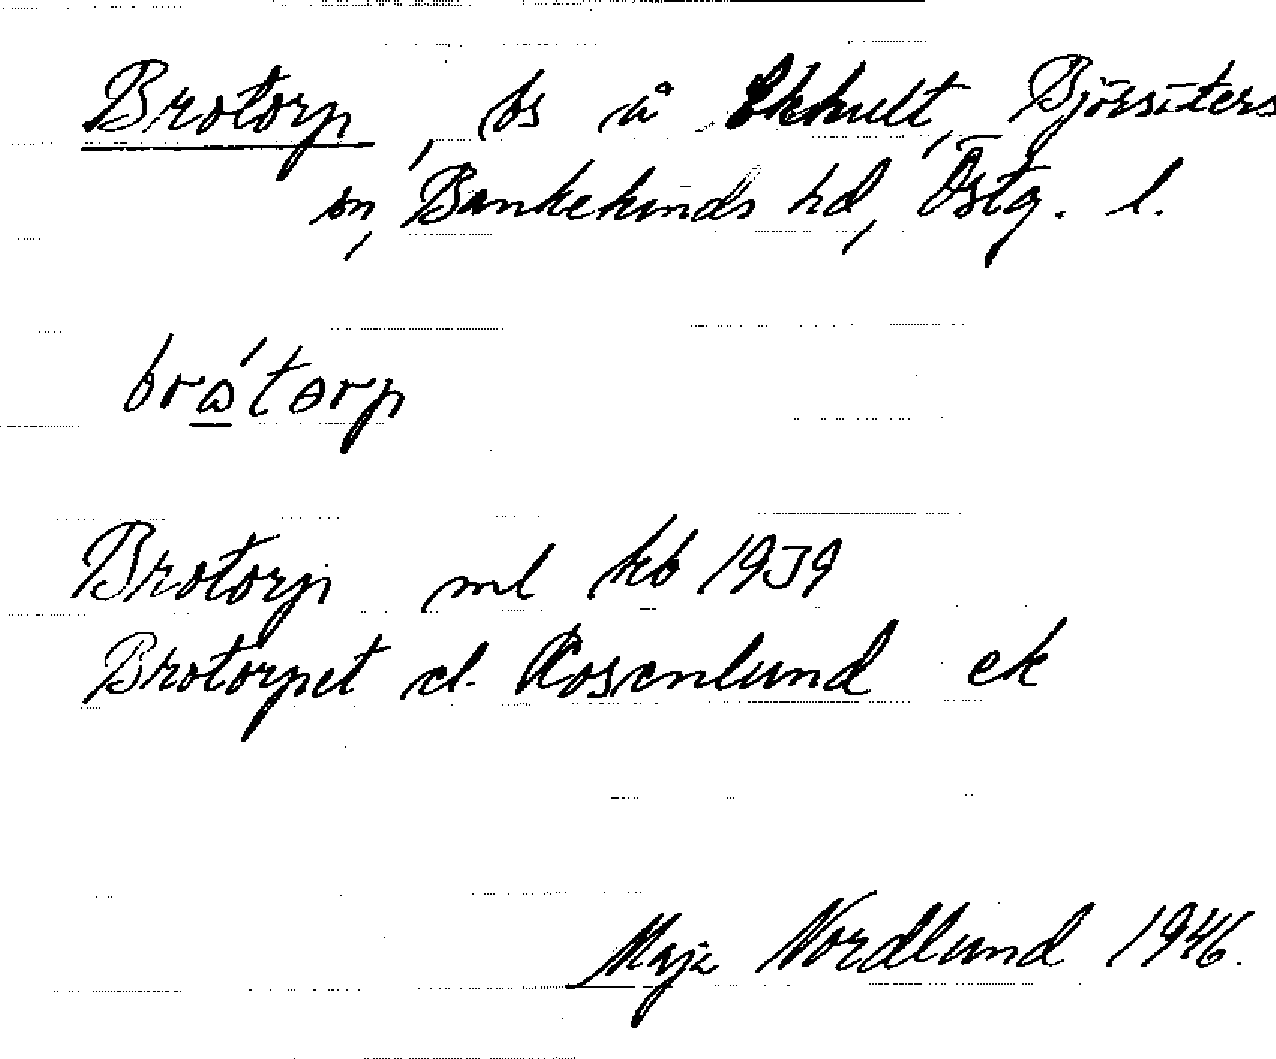 Brotorp, bs å Ekhult, Björsäters
sn, Bankekinds hd, Östg. l.
brω´tɵrp
Brotorp ml kb 1939
Brotorpet el. Rosenlund ek
Maja Nordlund 1946.